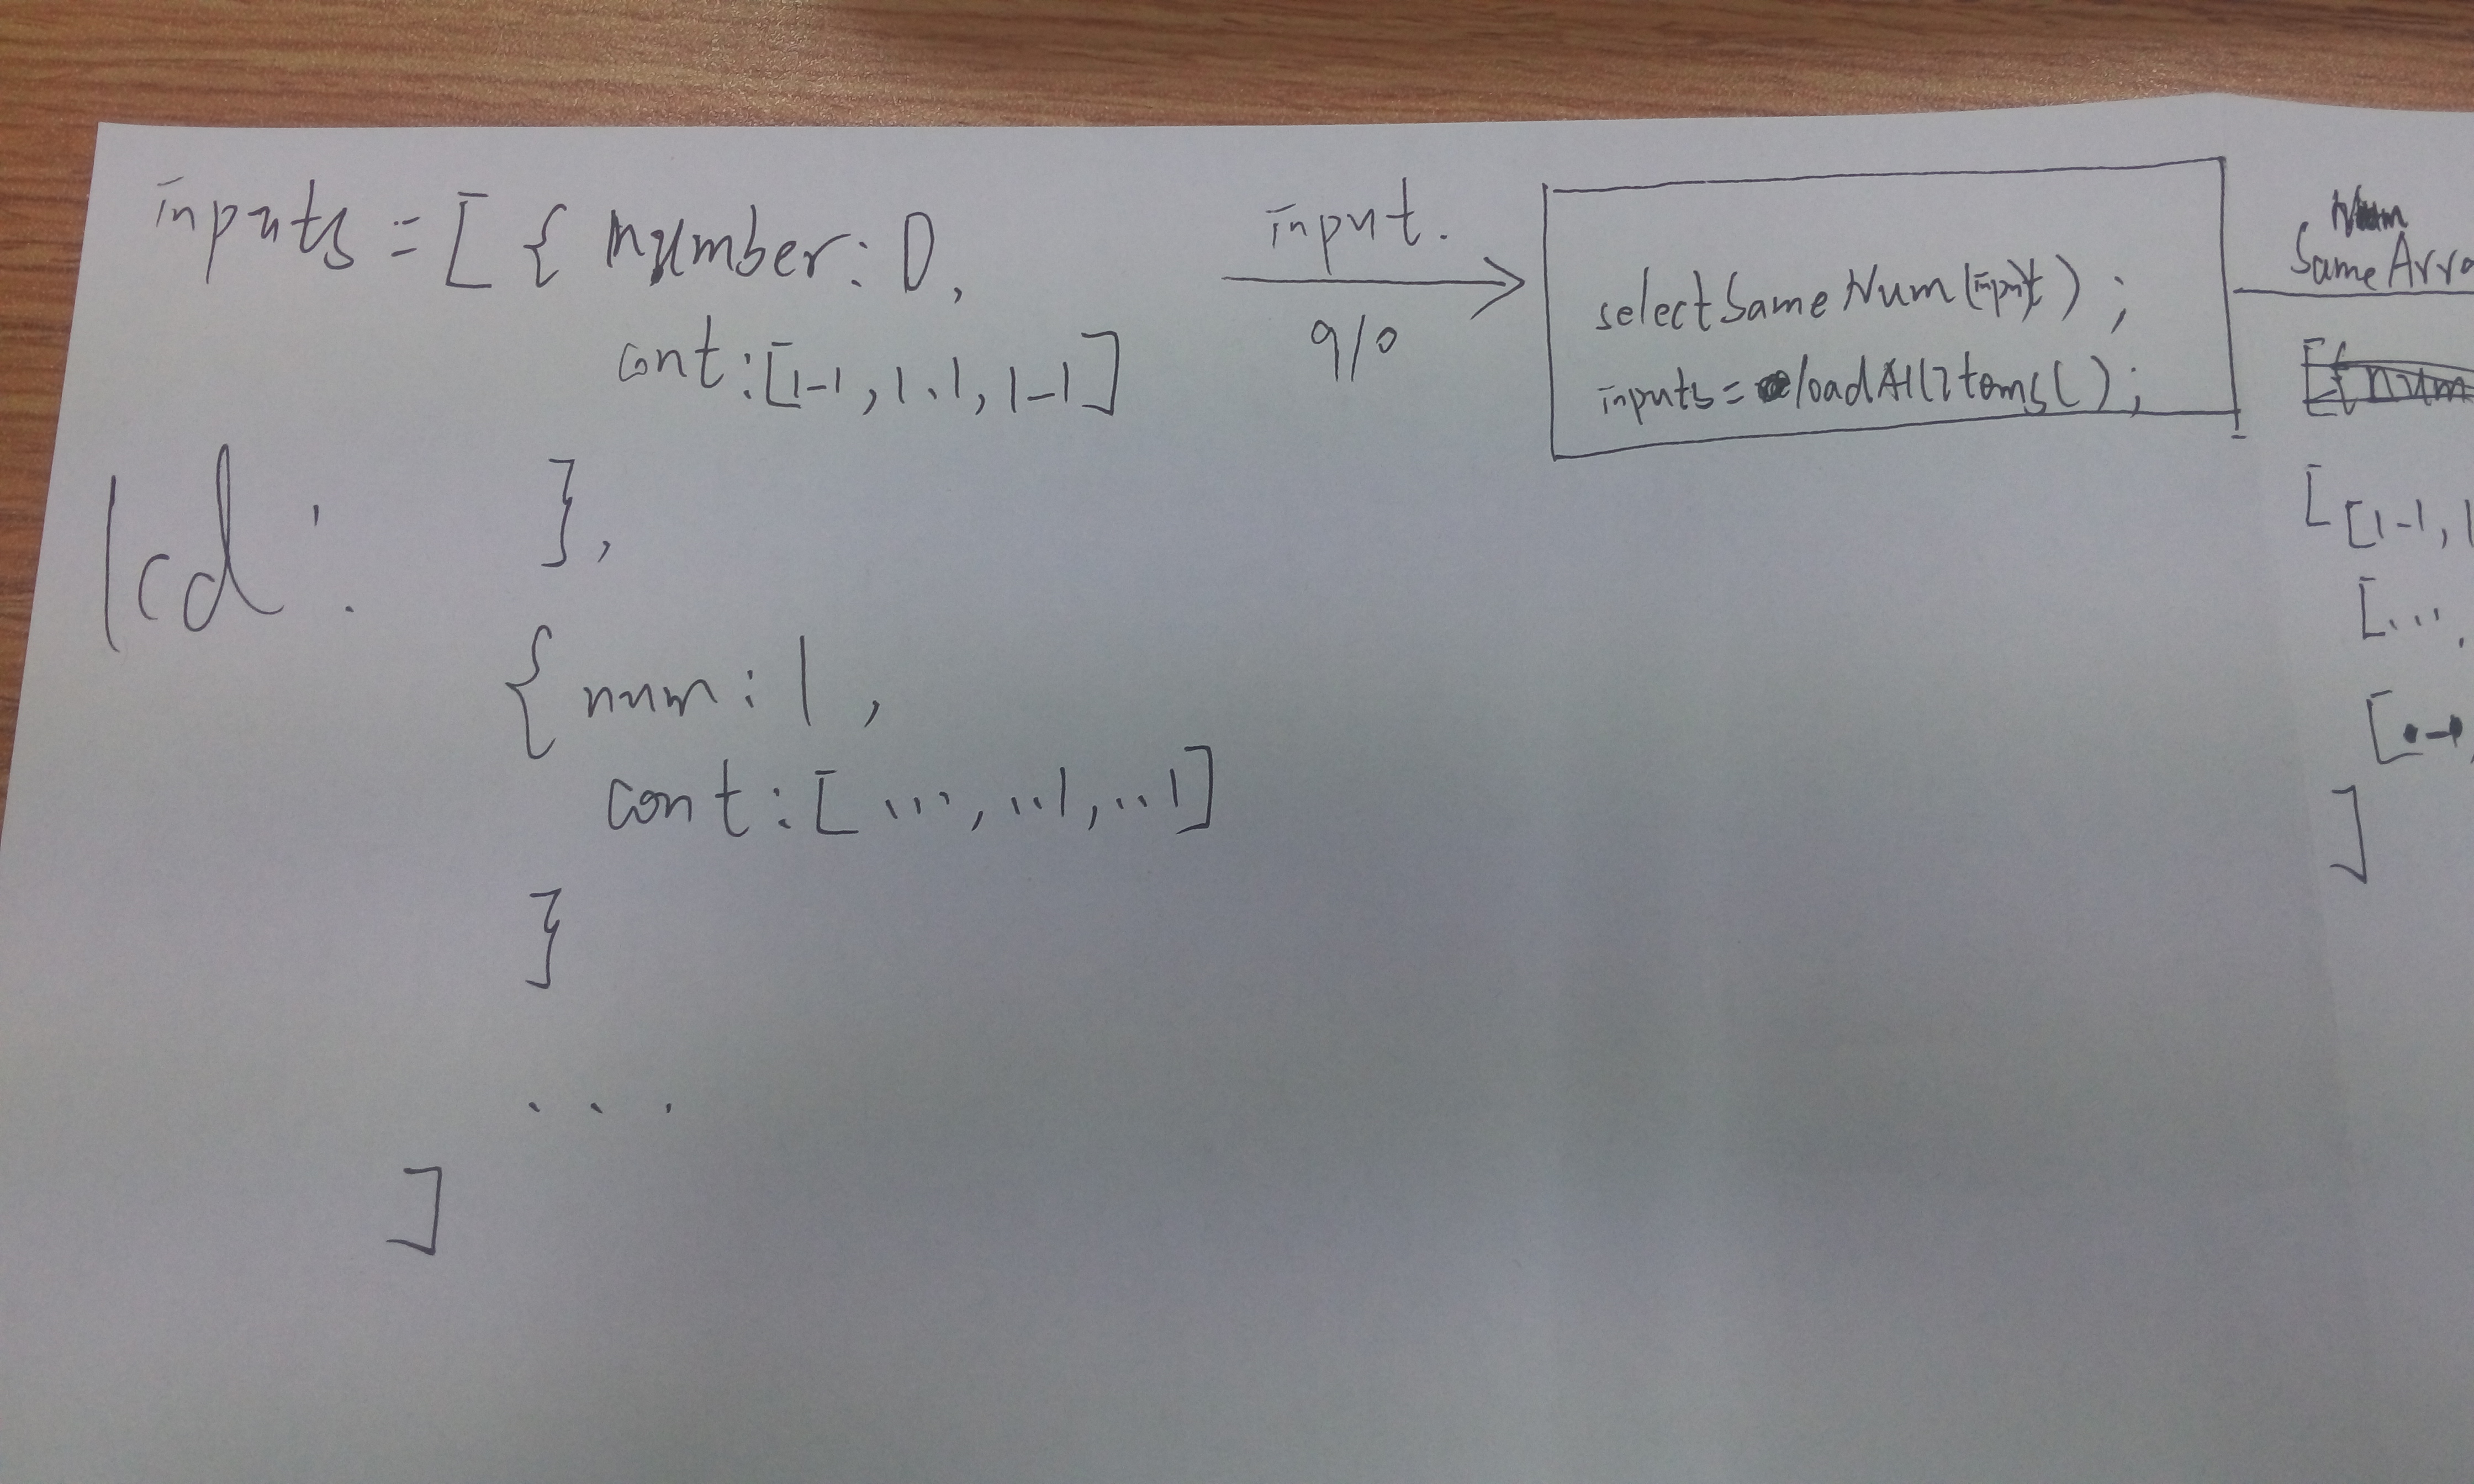 inputs = [ { number: 0,
cont: [1-1, 1.1, 1-1]
},
lcd:
{ num: 1,
cont: [ ..., ..1, ..1]
}
. . .
]
input.
910
selectSameNum(input);
inputs = loadAllItems();
Num
SameArra
[{num
[ [1-1, 1
[...,
[
]